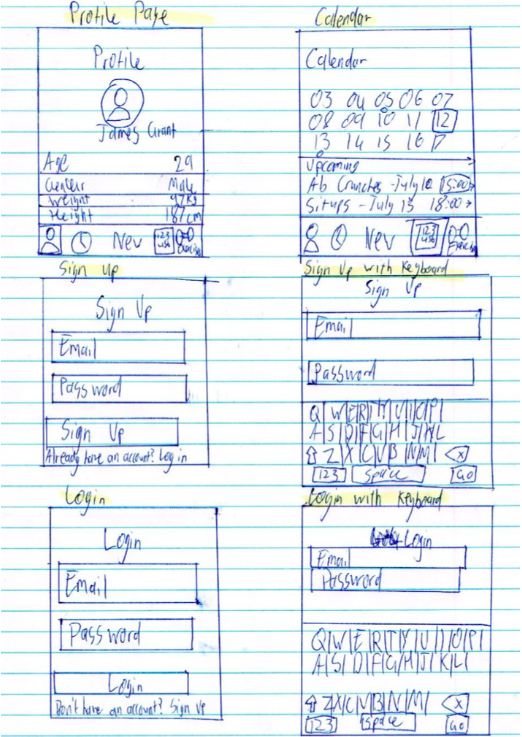 Profile Page
Profile
James Grant
Age 29
Gender Male
Weight 97kg
Height 187cm
New 123 456 Exercise
Calendar
Calendar
03 04 05 06 07
08 09 10 11 12
13 14 15 16 17
Upcoming
Ab Crunches - July 12 15:00 >
Situps - July 13 18:00 >
New 123 456 Exercise
Sign up
Sign Up
Email
Password
Sign Up
Already have an account? Log in
Sign Up with Keyboard
Sign Up
Email
Password
Q W E R T Y U I O P
A S D F G H J K L
Z X C V B N M X
123 Space Go
Login
Login
Email
Password
Login
Don't have an account? Sign Up
Login with Keyboard
Login
Email
Password
Q W E R T Y U I O P
A S D F G H J K L
Z X C V B N M X
123 Space Go